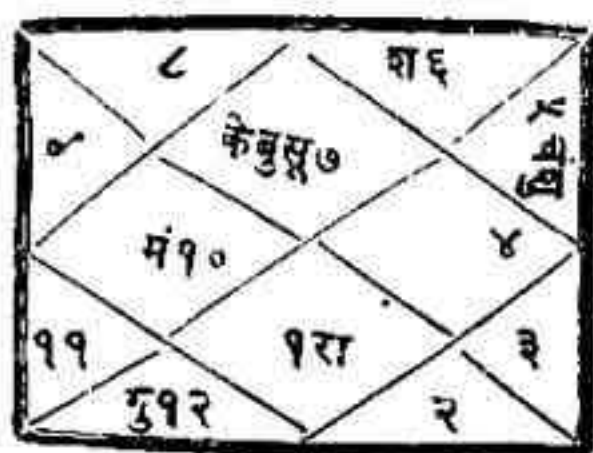 ८
श६
९
केबुसू७
५ चंशु
मं१०
४
११
१रा
३
गु१२
२